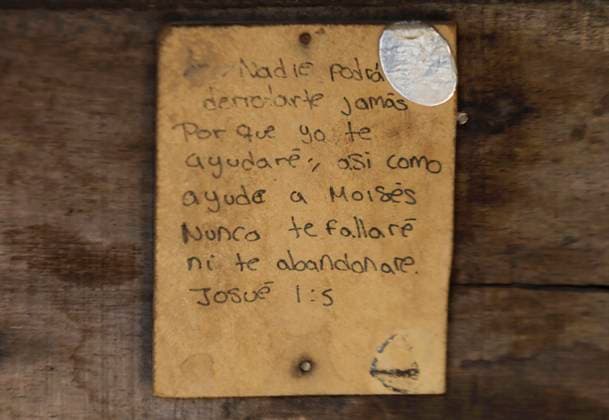 Nadie podrá
derrotarte jamás
Por que yo te
ayudaré, asi como
ayudé a Moisés
Nunca te fallaré
ni te abandonare.
Josué 1:5